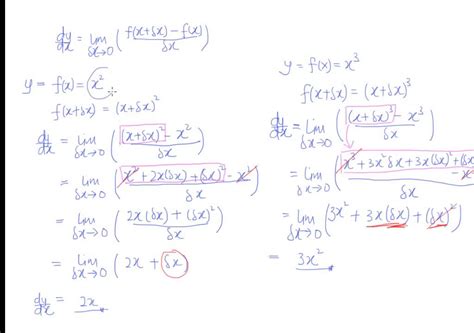 dy/dx = lim δx→0 ( f(x+δx) - f(x) / δx )
y = f(x) = x²
f(x+δx) = (x+δx)²
dy/dx = lim δx→0 ( (x+δx)² - x² / δx )
= lim δx→0 ( x² + 2x(δx) + (δx)² - x² / δx )
= lim δx→0 ( 2x(δx) + (δx)² / δx )
= lim δx→0 ( 2x + δx )
dy/dx = 2x
y = f(x) = x³
f(x+δx) = (x+δx)³
dy/dx = lim δx→0 ( (x+δx)³ - x³ / δx )
= lim δx→0 ( x³ + 3x²δx + 3x(δx)² + (δx) - x / δx )
= lim δx→0 ( 3x² + 3x(δx) + (δx)² )
= 3x²